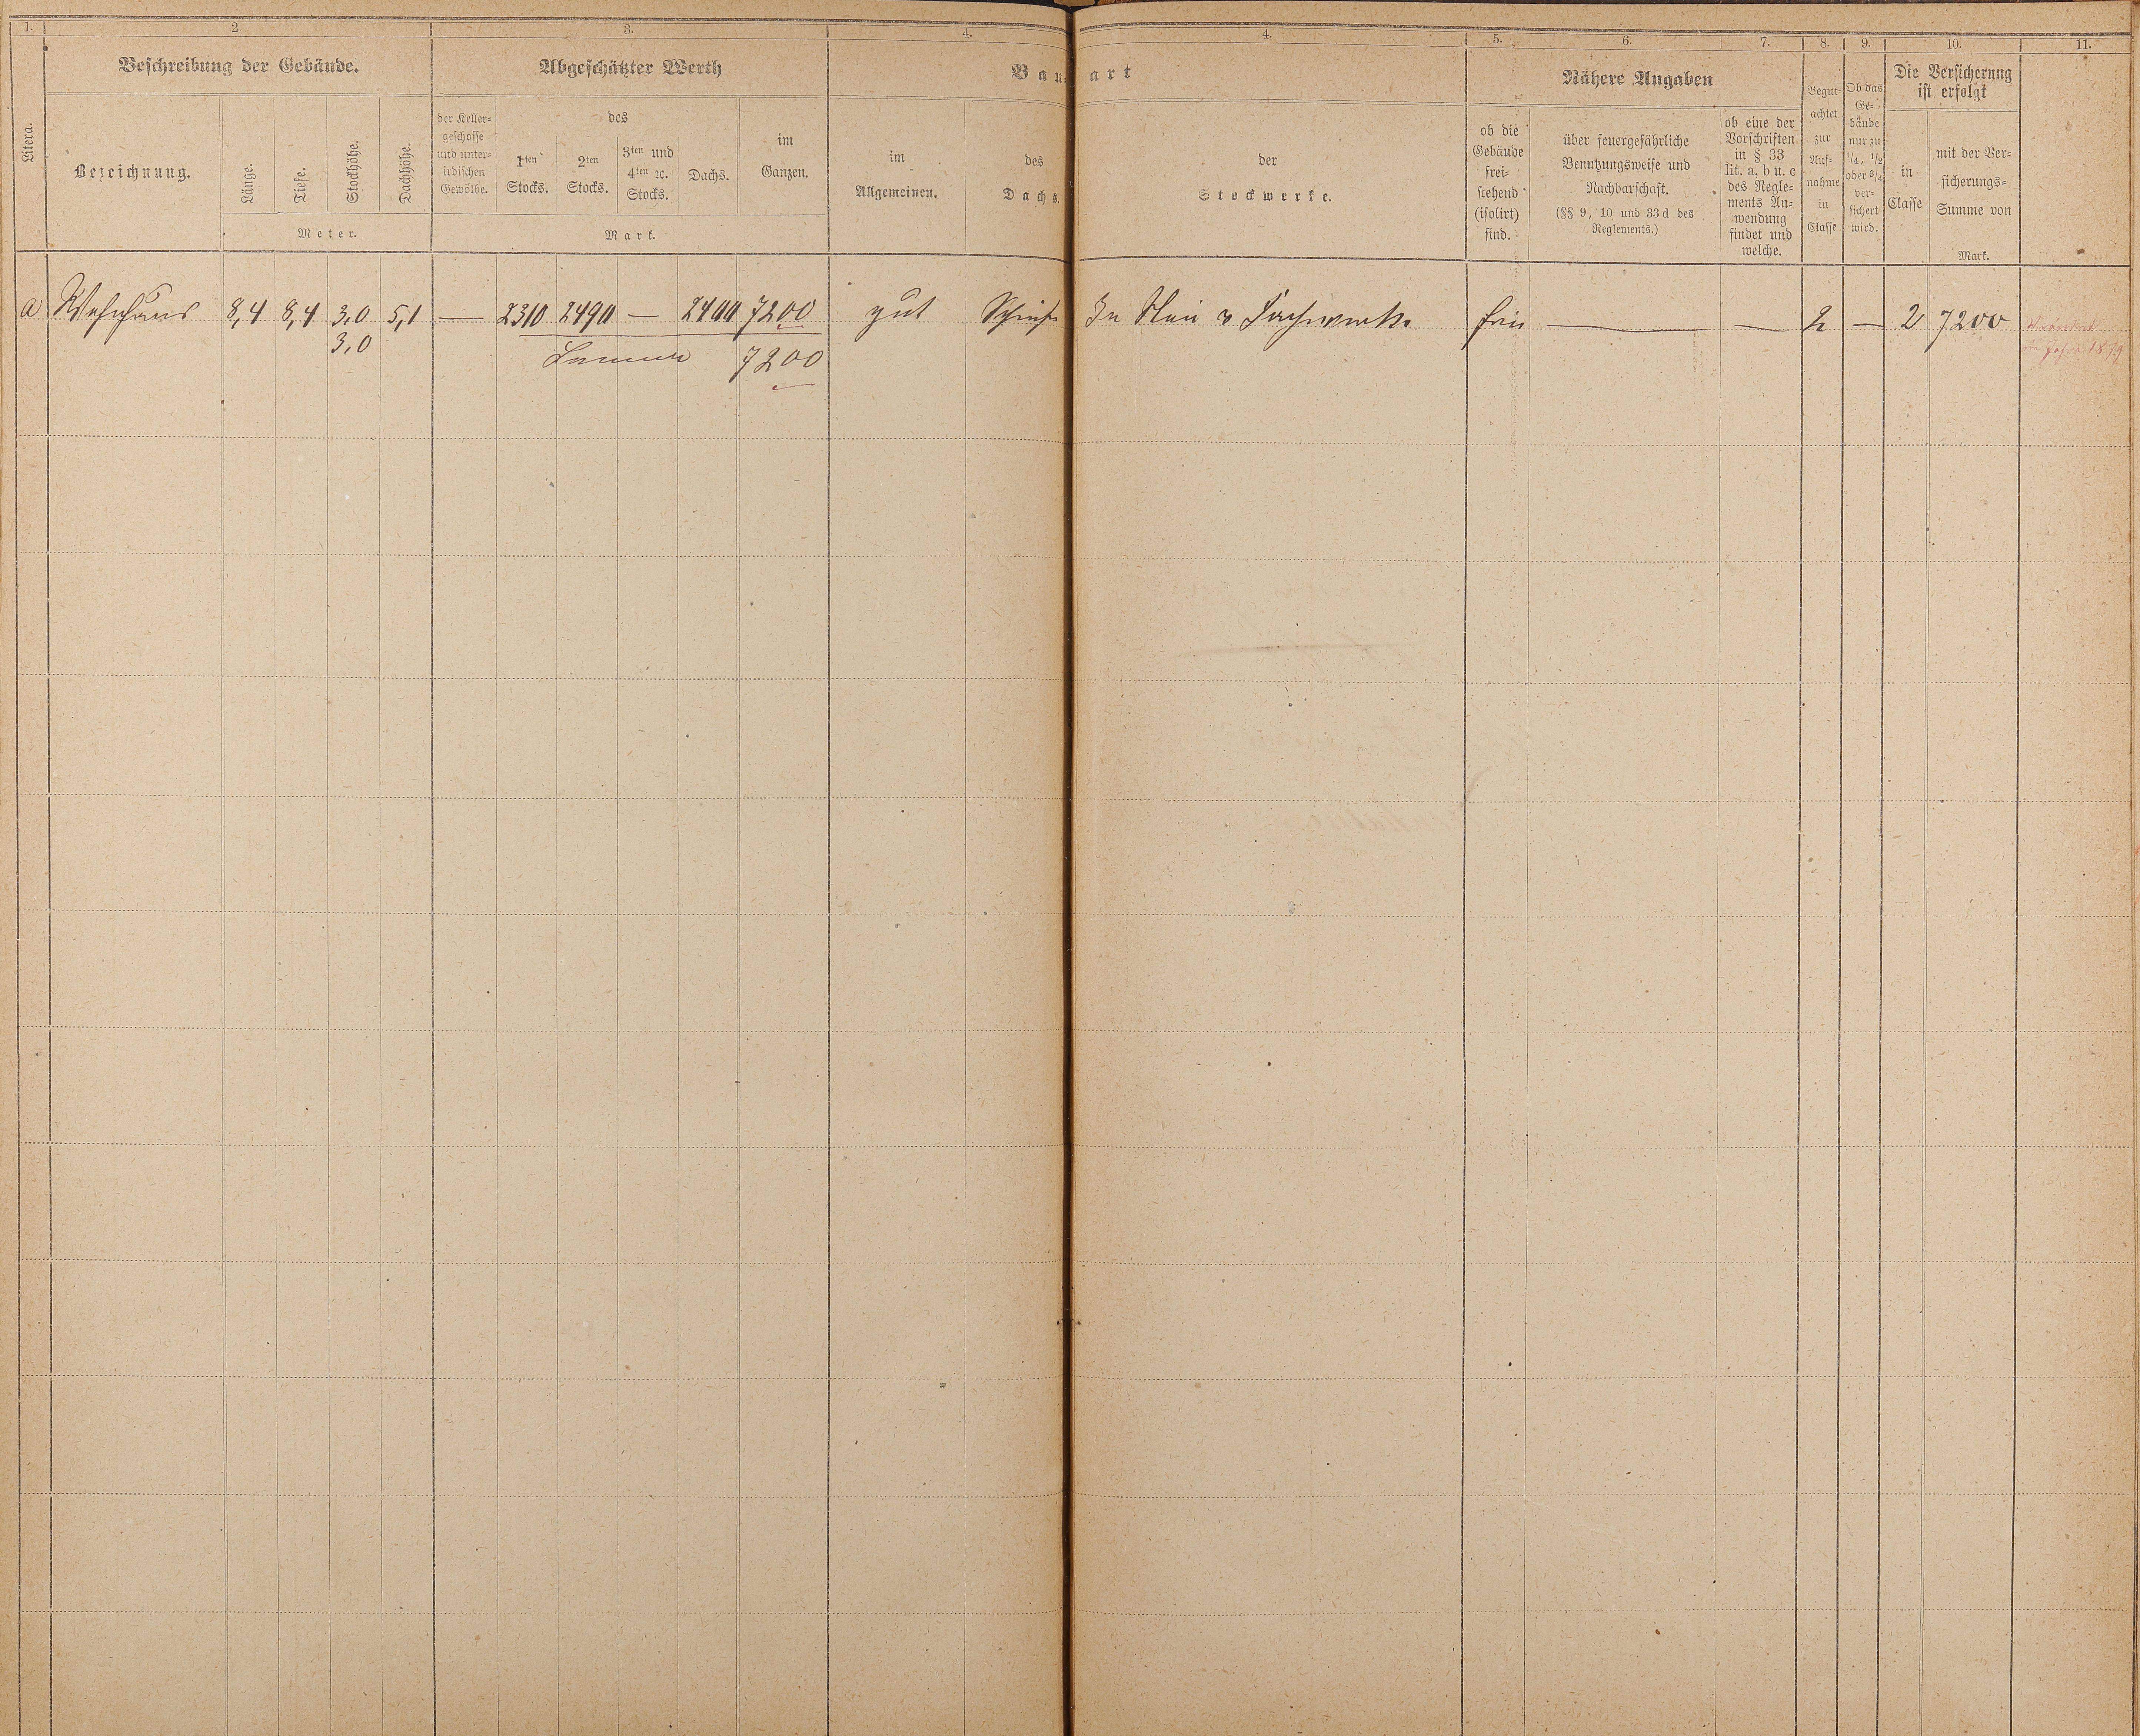 1. 2. 3. 4. 4. 5. 6. 7. 8. 9. 10. 11.
Beschreibung der Gebäude. Abgeschätzter Werth Bau art Nähere Angaben Die Versicherung
ist erfolgt
Litera.
Bezeichnung.
Länge.
Tiefe.
Stockhöhe.
Dachhöhe.
Meter.
der Keller-
geschosse
und unter-
irdischen
Gewölbe.
des
1ten
Stocks.
2ten
Stocks.
3ten und
4ten ꝛc.
Stocks.
Dachs.
im
Ganzen.
Mark.
im
Allgemeinen.
des
Dachs.
der
Stockwerke.
ob die
Gebäude
frei-
stehend
(isolirt)
sind.
über feuergefährliche
Benutzungsweise und
Nachbarschaft.
(§§ 9, 10 und 33d des
Reglements.)
ob eine der
Vorschriften
in § 33
lit. a, b u. c
des Regle-
ments An-
wendung
findet und
welche.
Begut-
achtet
zur
Auf-
nahme
in
Classe
Ob das
Ge-
bäude
nur zu
1/4, 1/2
oder 3/4
ver-
sichert
wird.
in
Classe
mit der Ver-
sicherungs-
Summe von
Mark.
a Wohnhaus 8,4 8,4 3,0 5,1 — 2310 2490 — 2400 7200 gut Schiefer In Stein u Fachwerk frei — — 2 — 2 7200
3,0
Summe 7200
im Jahre 1879